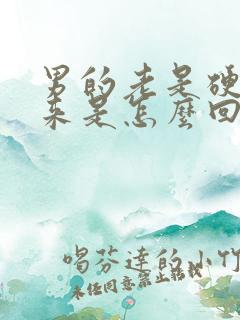 男的老是硬
来是怎麼回
喝芬達的小竹
未经同意禁止转载